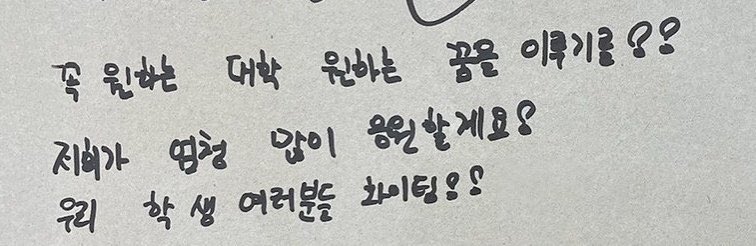 꼭 원하는 대학 원하는 꿈을 이루기를!!
저희가 엄청 많이 응원할게요!
우리 학생 여러분들 화이팅!!